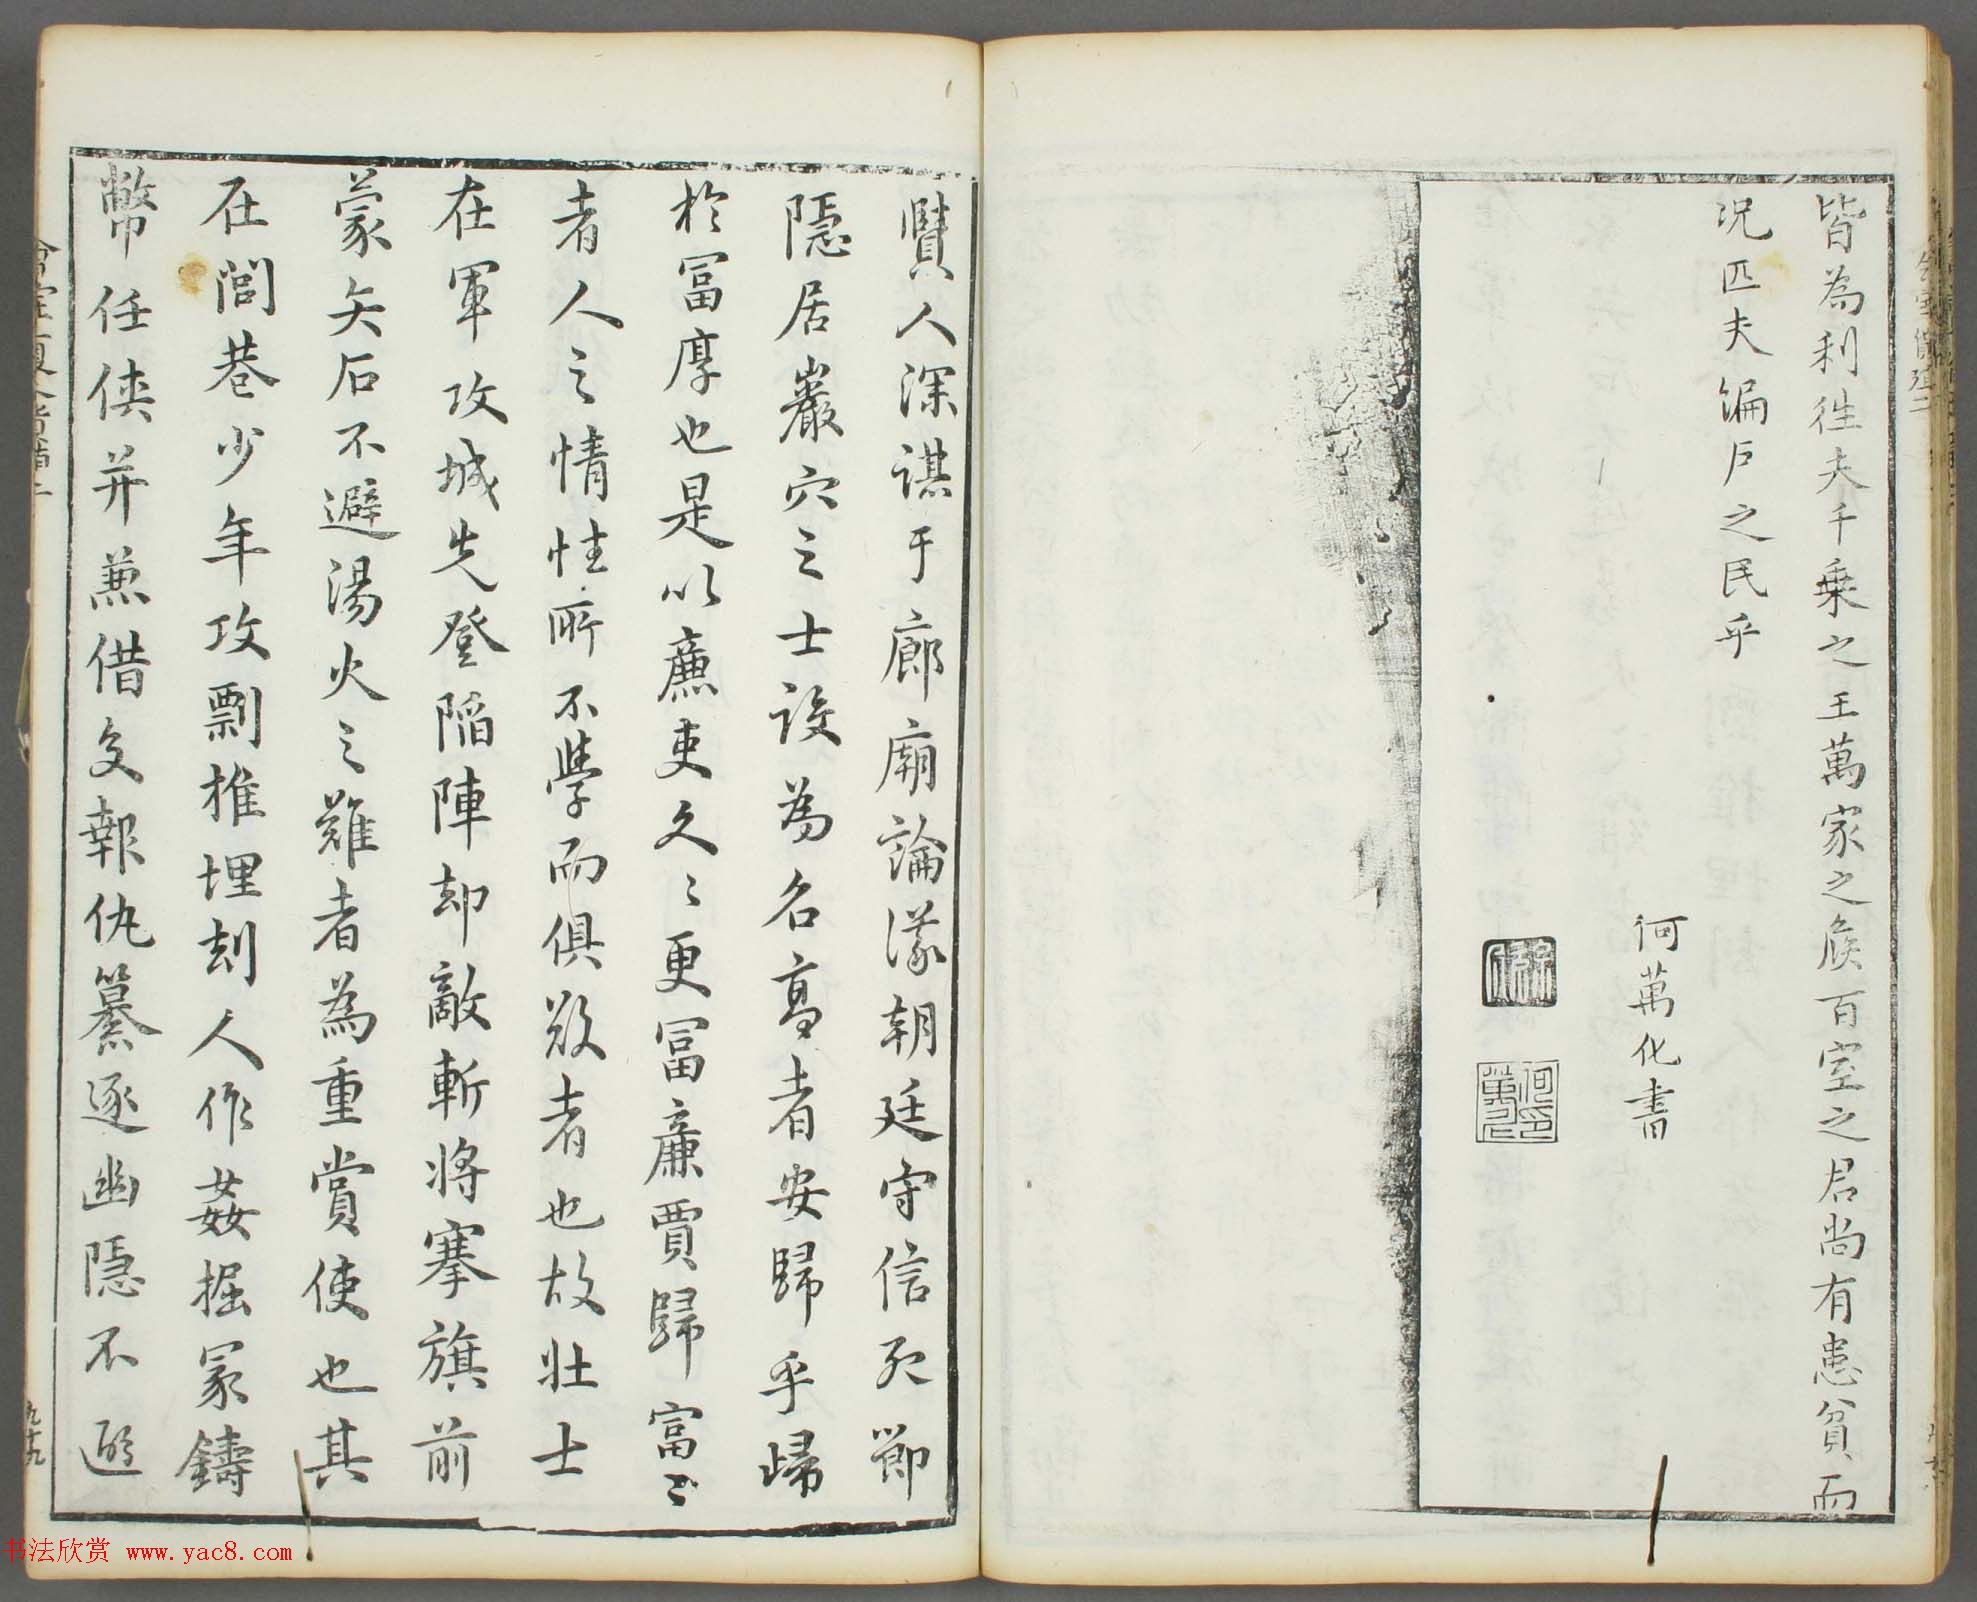 皆為利往夫千乗之王萬家之侯百室之君尚有患貧而
况匹夫編户之民乎
何萬化書
賢人深謀于廊廟論議朝廷守信死節
隱居巖穴之士設為名高者安歸乎歸
於冨厚也是以廉吏久〻更冨廉賈歸富〻
者人之情性所不學而俱欲者也故壮士
在軍攻城先登陷陣却敵斬将搴旗前
蒙矢石不避湯火之難者為重賞使也其
在閭巷少年攻剽椎埋刼人作姦掘冢鑄
幣任俠并兼借交報仇篡逐幽隱不避
九十九
书法欣赏 www.yac8.com